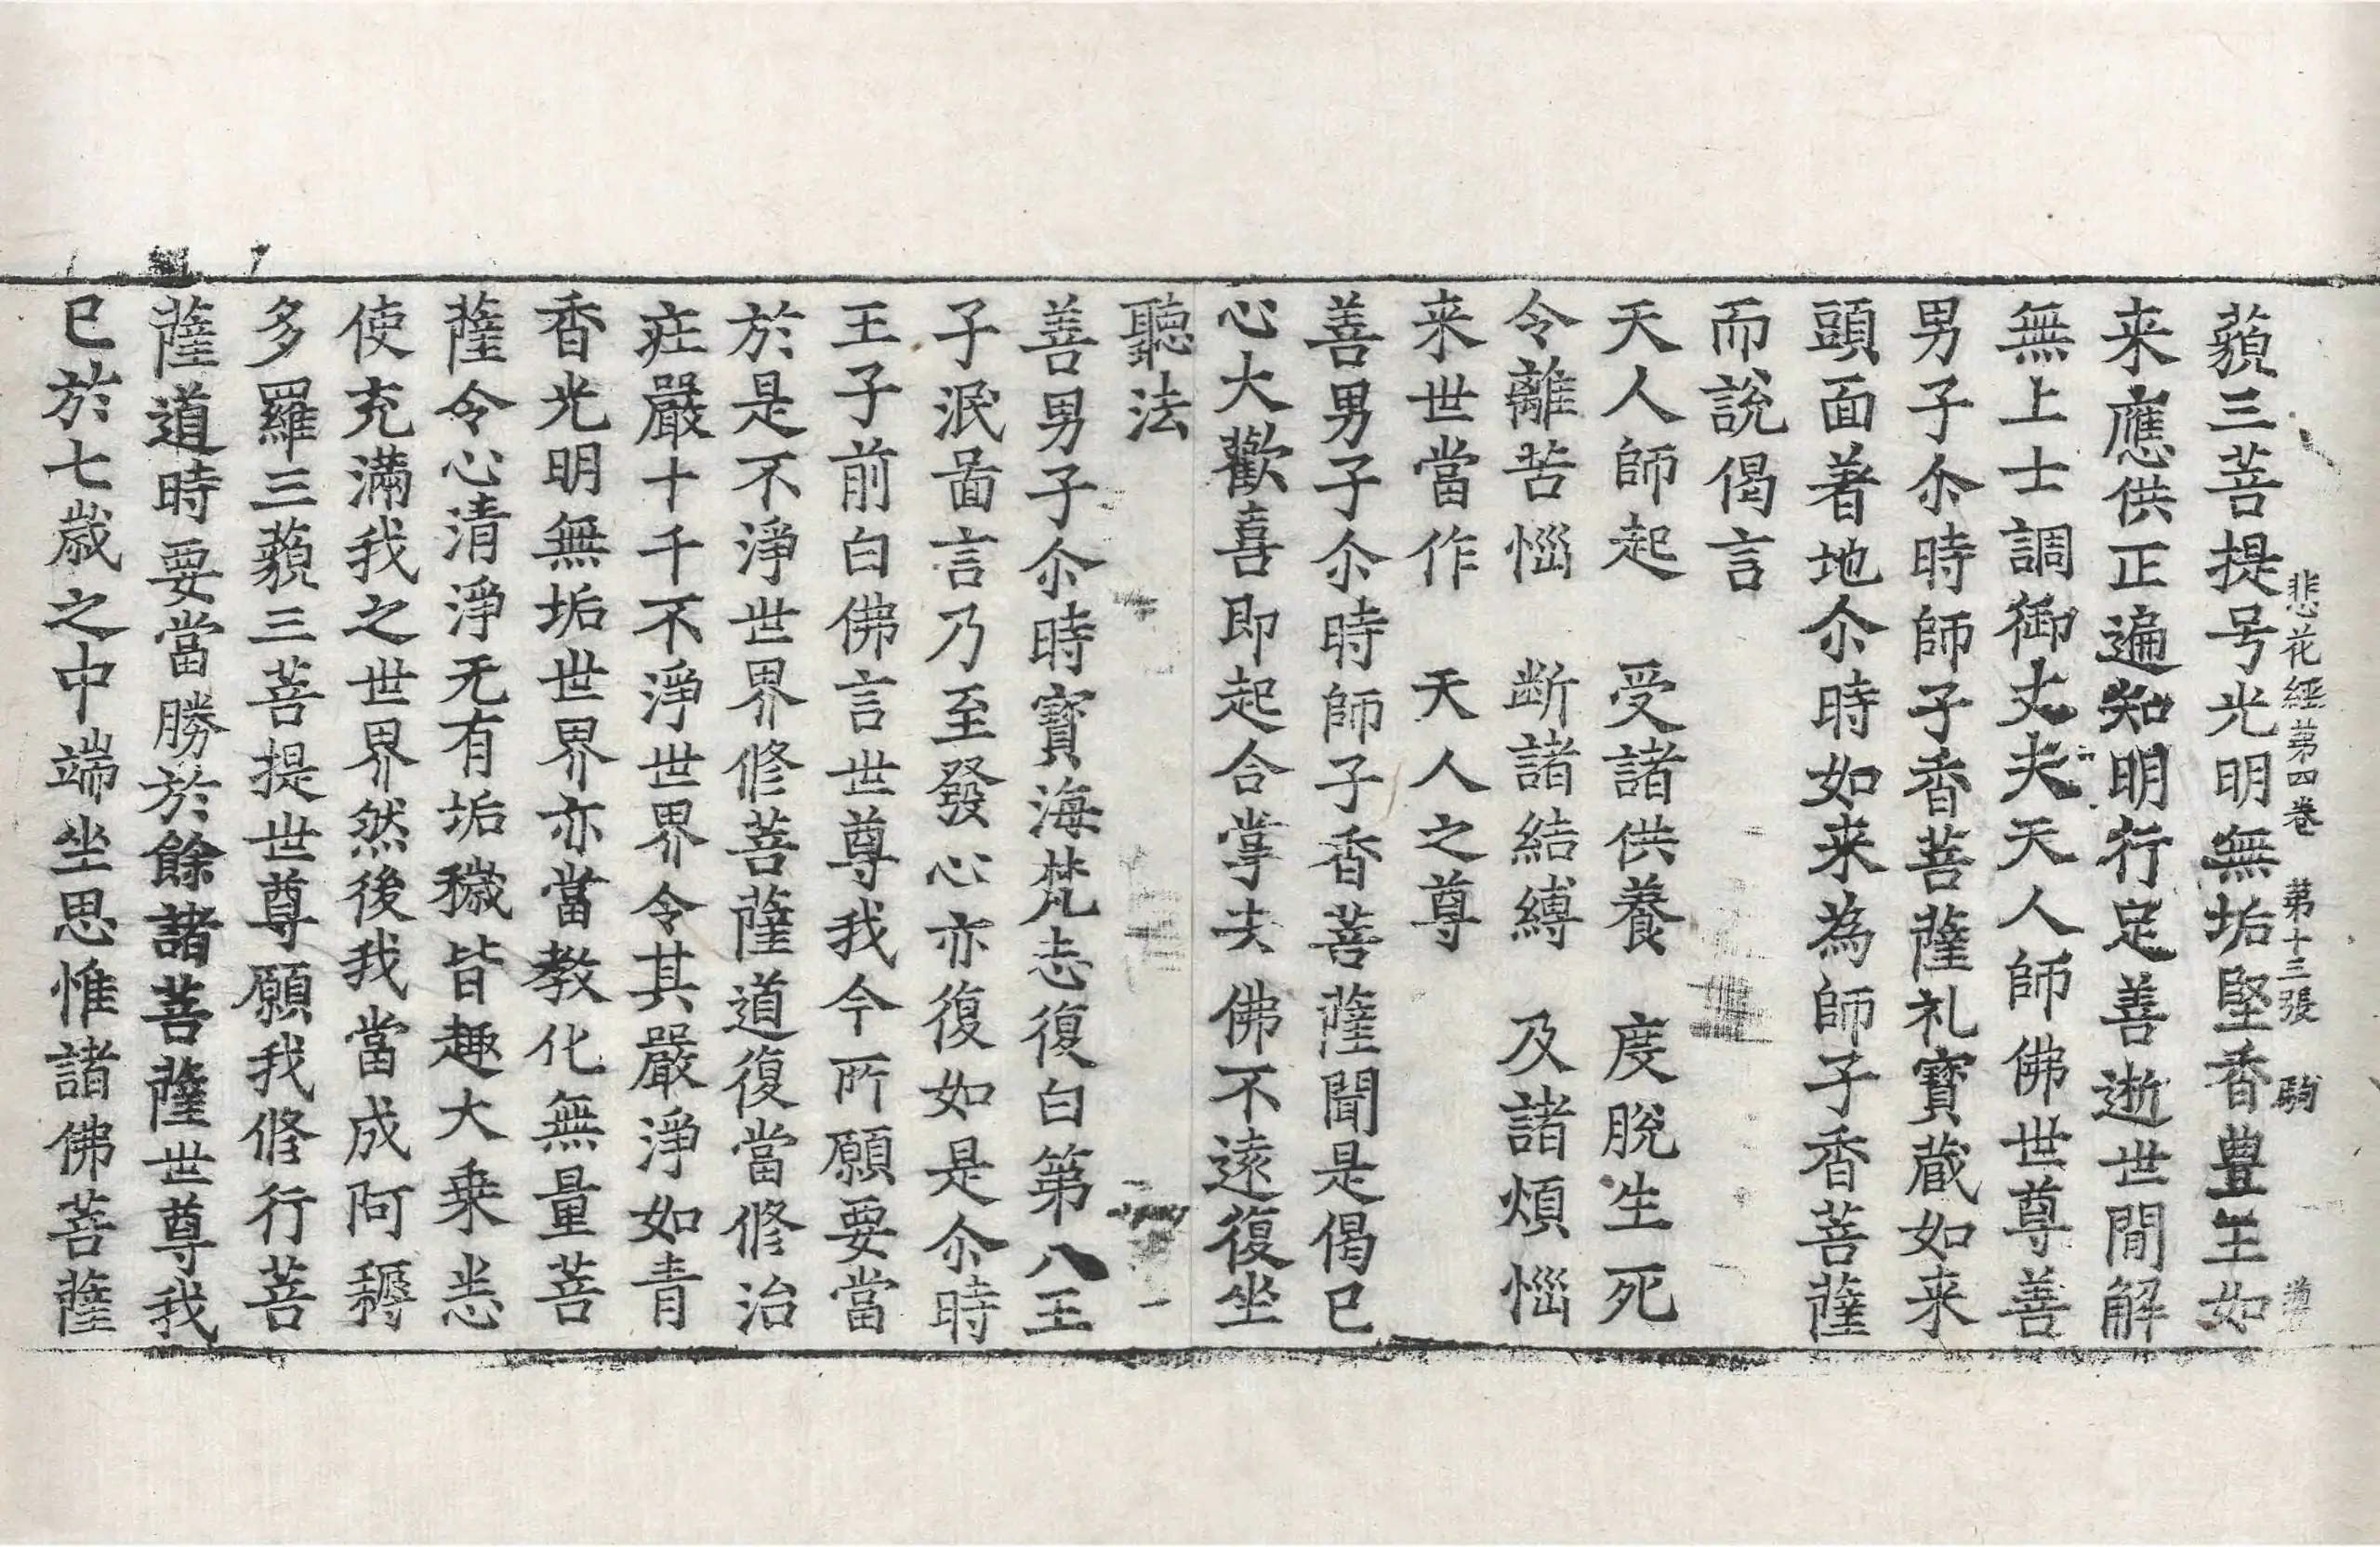 悲花經第四卷 第十三張 駒
藐三菩提号光明無垢堅香豊王如
来應供正遍知明行足善逝世閒解
無上士調御丈夫天人師佛世尊善
男子尒時師子香菩薩礼寶蔵如来
頭面著地尒時如来為師子香菩薩
而說偈言
天人師起 受諸供養 度脫生死
令離苦惱 断諸結縛 及諸煩惱
来世當作 天人之尊
善男子尒時師子香菩薩聞是偈已
心大歡喜即起合掌去佛不遠復坐
聽法
善男子尒時寶海梵志復白第八王
子泯啚言乃至發心亦復如是尒時
王子前白佛言世尊我今所願要當
於是不淨世界修菩薩道復當修治
莊嚴十千不淨世界令其嚴淨如青
香光明無垢世界亦當教化無量菩
薩令心清淨无有垢穢皆趣大乗悉
使充滿我之世界然後我當成阿耨
多羅三藐三菩提世尊願我修行菩
薩道時要當勝於餘諸菩薩世尊我
已於七歲之中端坐思惟諸佛菩薩